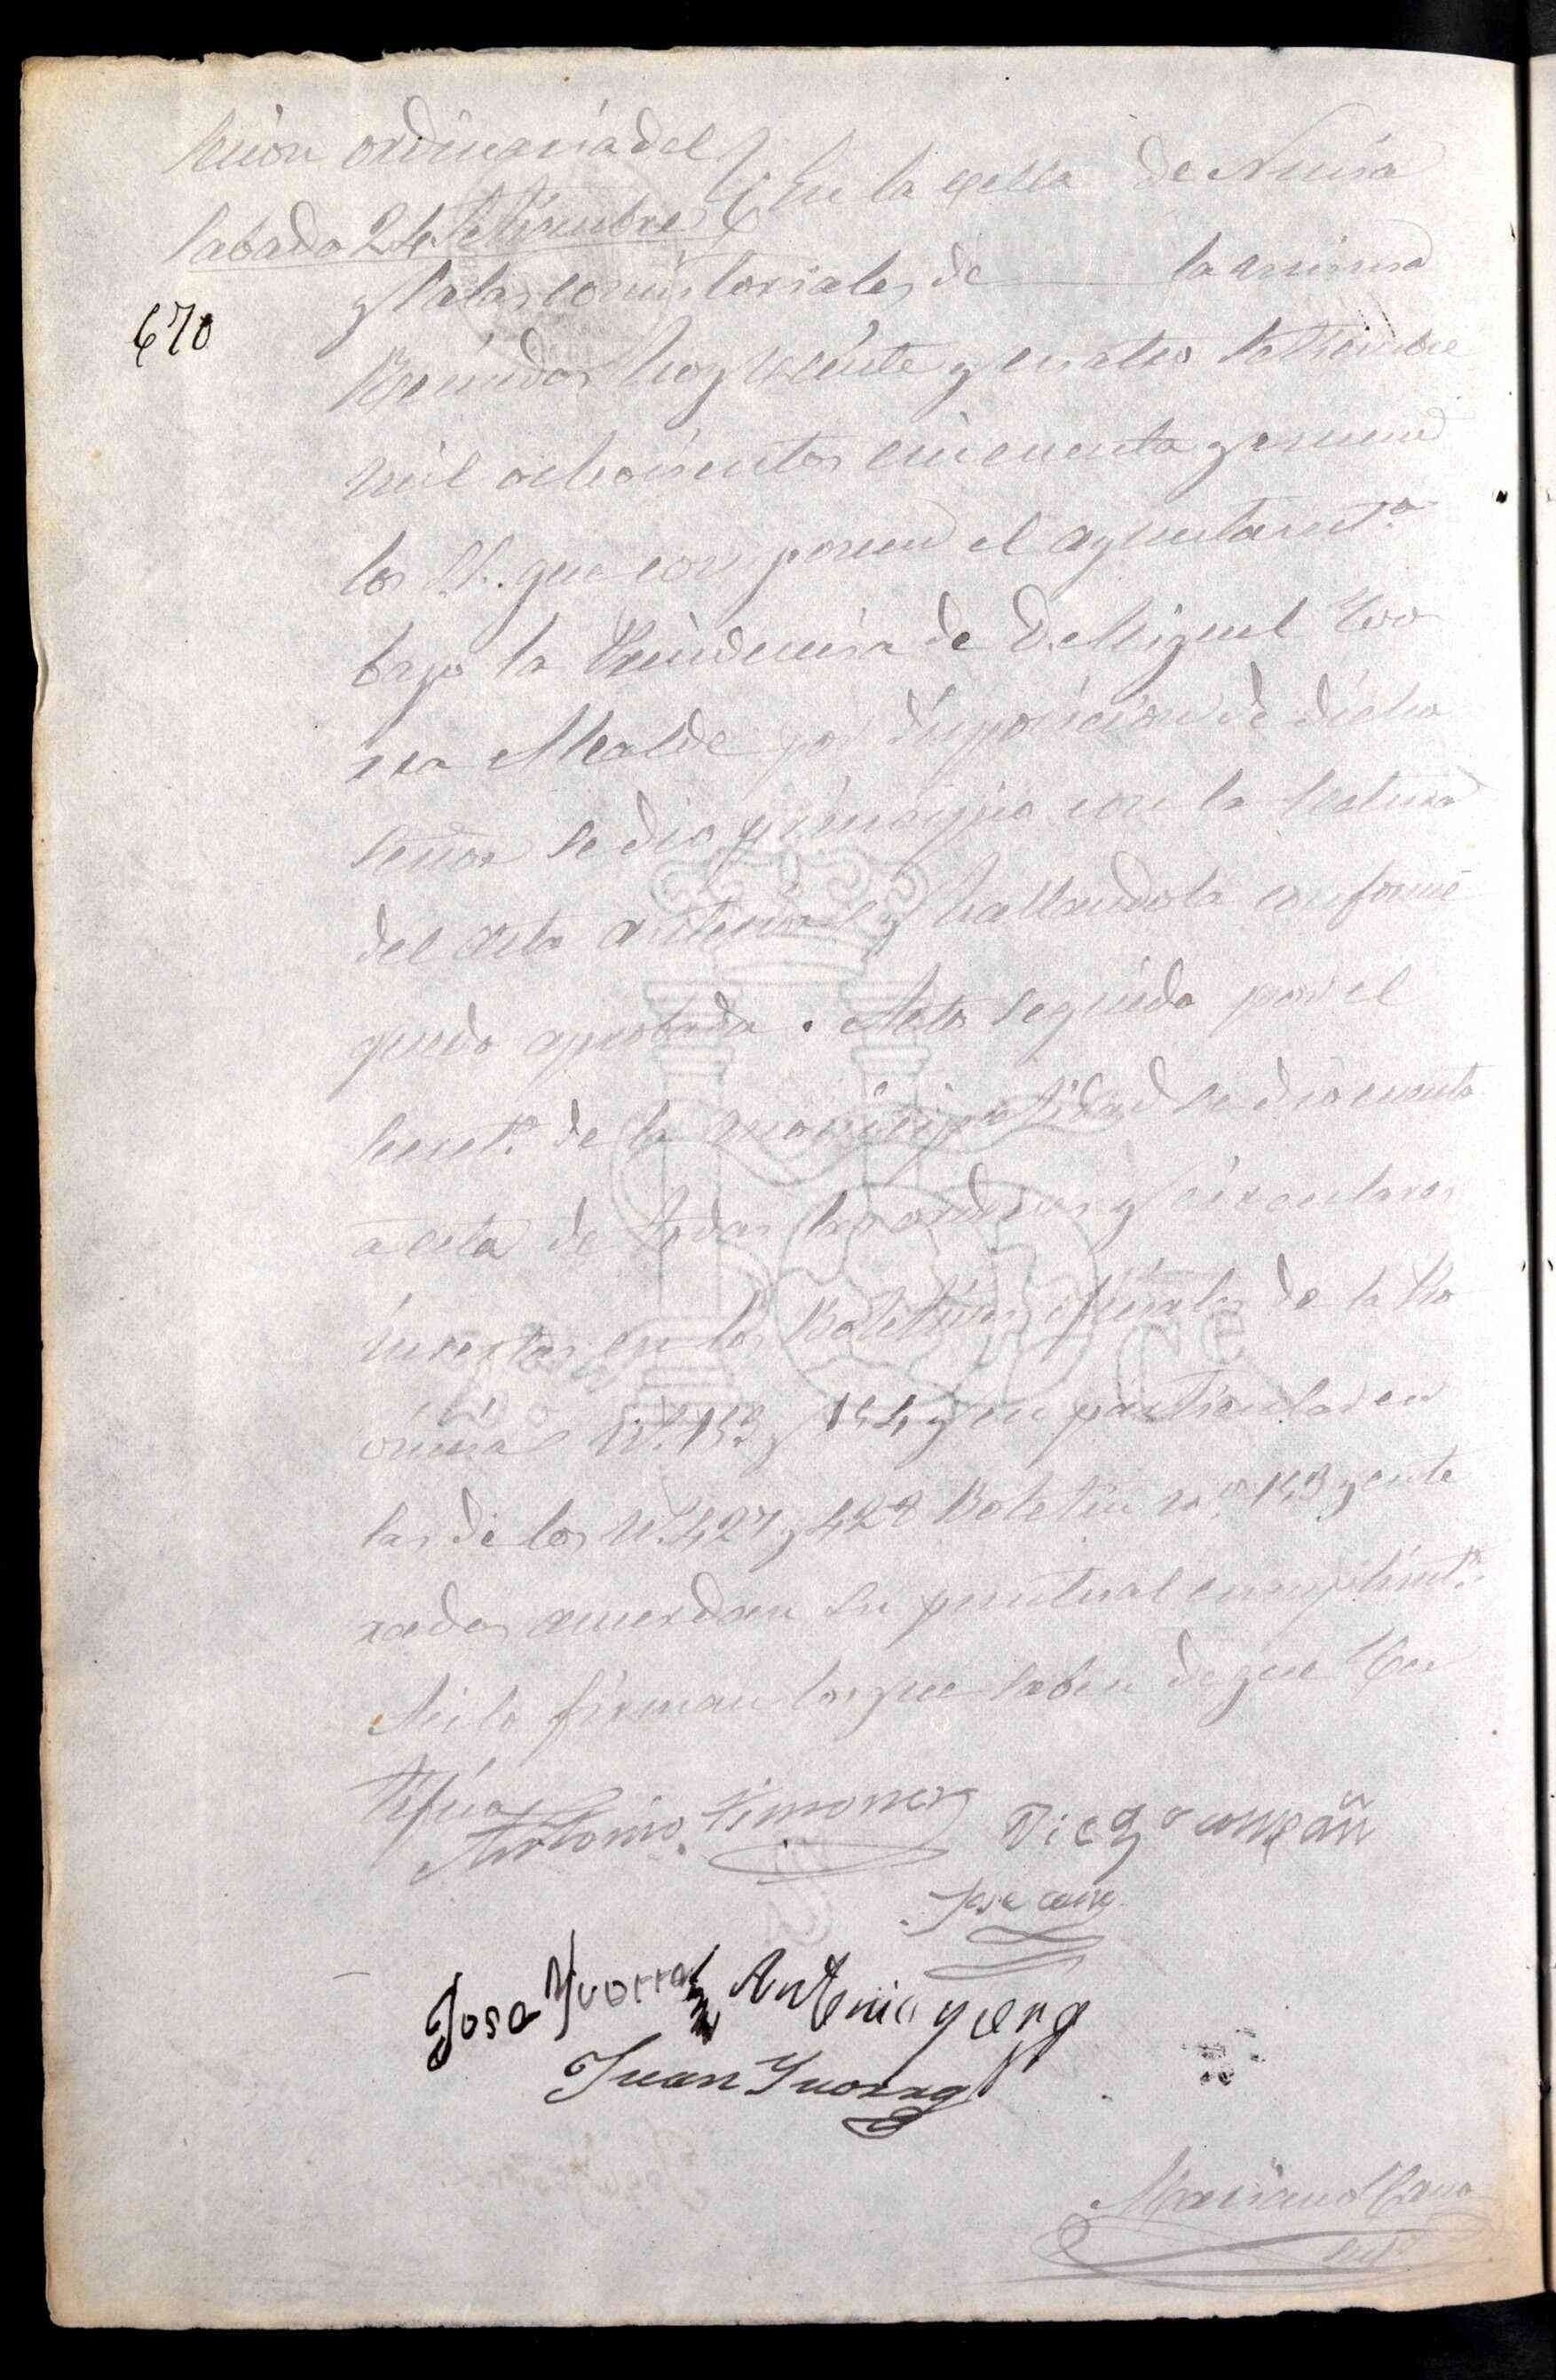 Secion ordinaria del
Sabado 24 Setiembre
En la villa de Nucia
y Salas Consistoriales de la misma
670
Reunidos hoy veinte y cuatro Setiembre
mil ochocientos cincuenta y nueve
los SS. que componen el ayuntamt.º
bajo la Presidencia de D. Miguel
Alcalde por disposicion de dicho
Señor se dio principio con la lectura
del acta anterior y hallandola conforme
quedo aprobada. Acto seguido por el
Secret.º de la municipalidad se dio cuenta
a esta de todas las ordenes y circulares
insertas en los Boletines oficiales de la Pro
vincia N.º 153 y 154 y en particular en
las de los N.º 427 y 428 Boletin n.º 153 y ente
rados acuerdan su puntual cumplimt.º
Asi lo firman los que saben de que Cer
tifico
Antonio Ximenez Diego
Jose
Jose Yvorra Antonio
Juan Yvorra
Mariano Cano